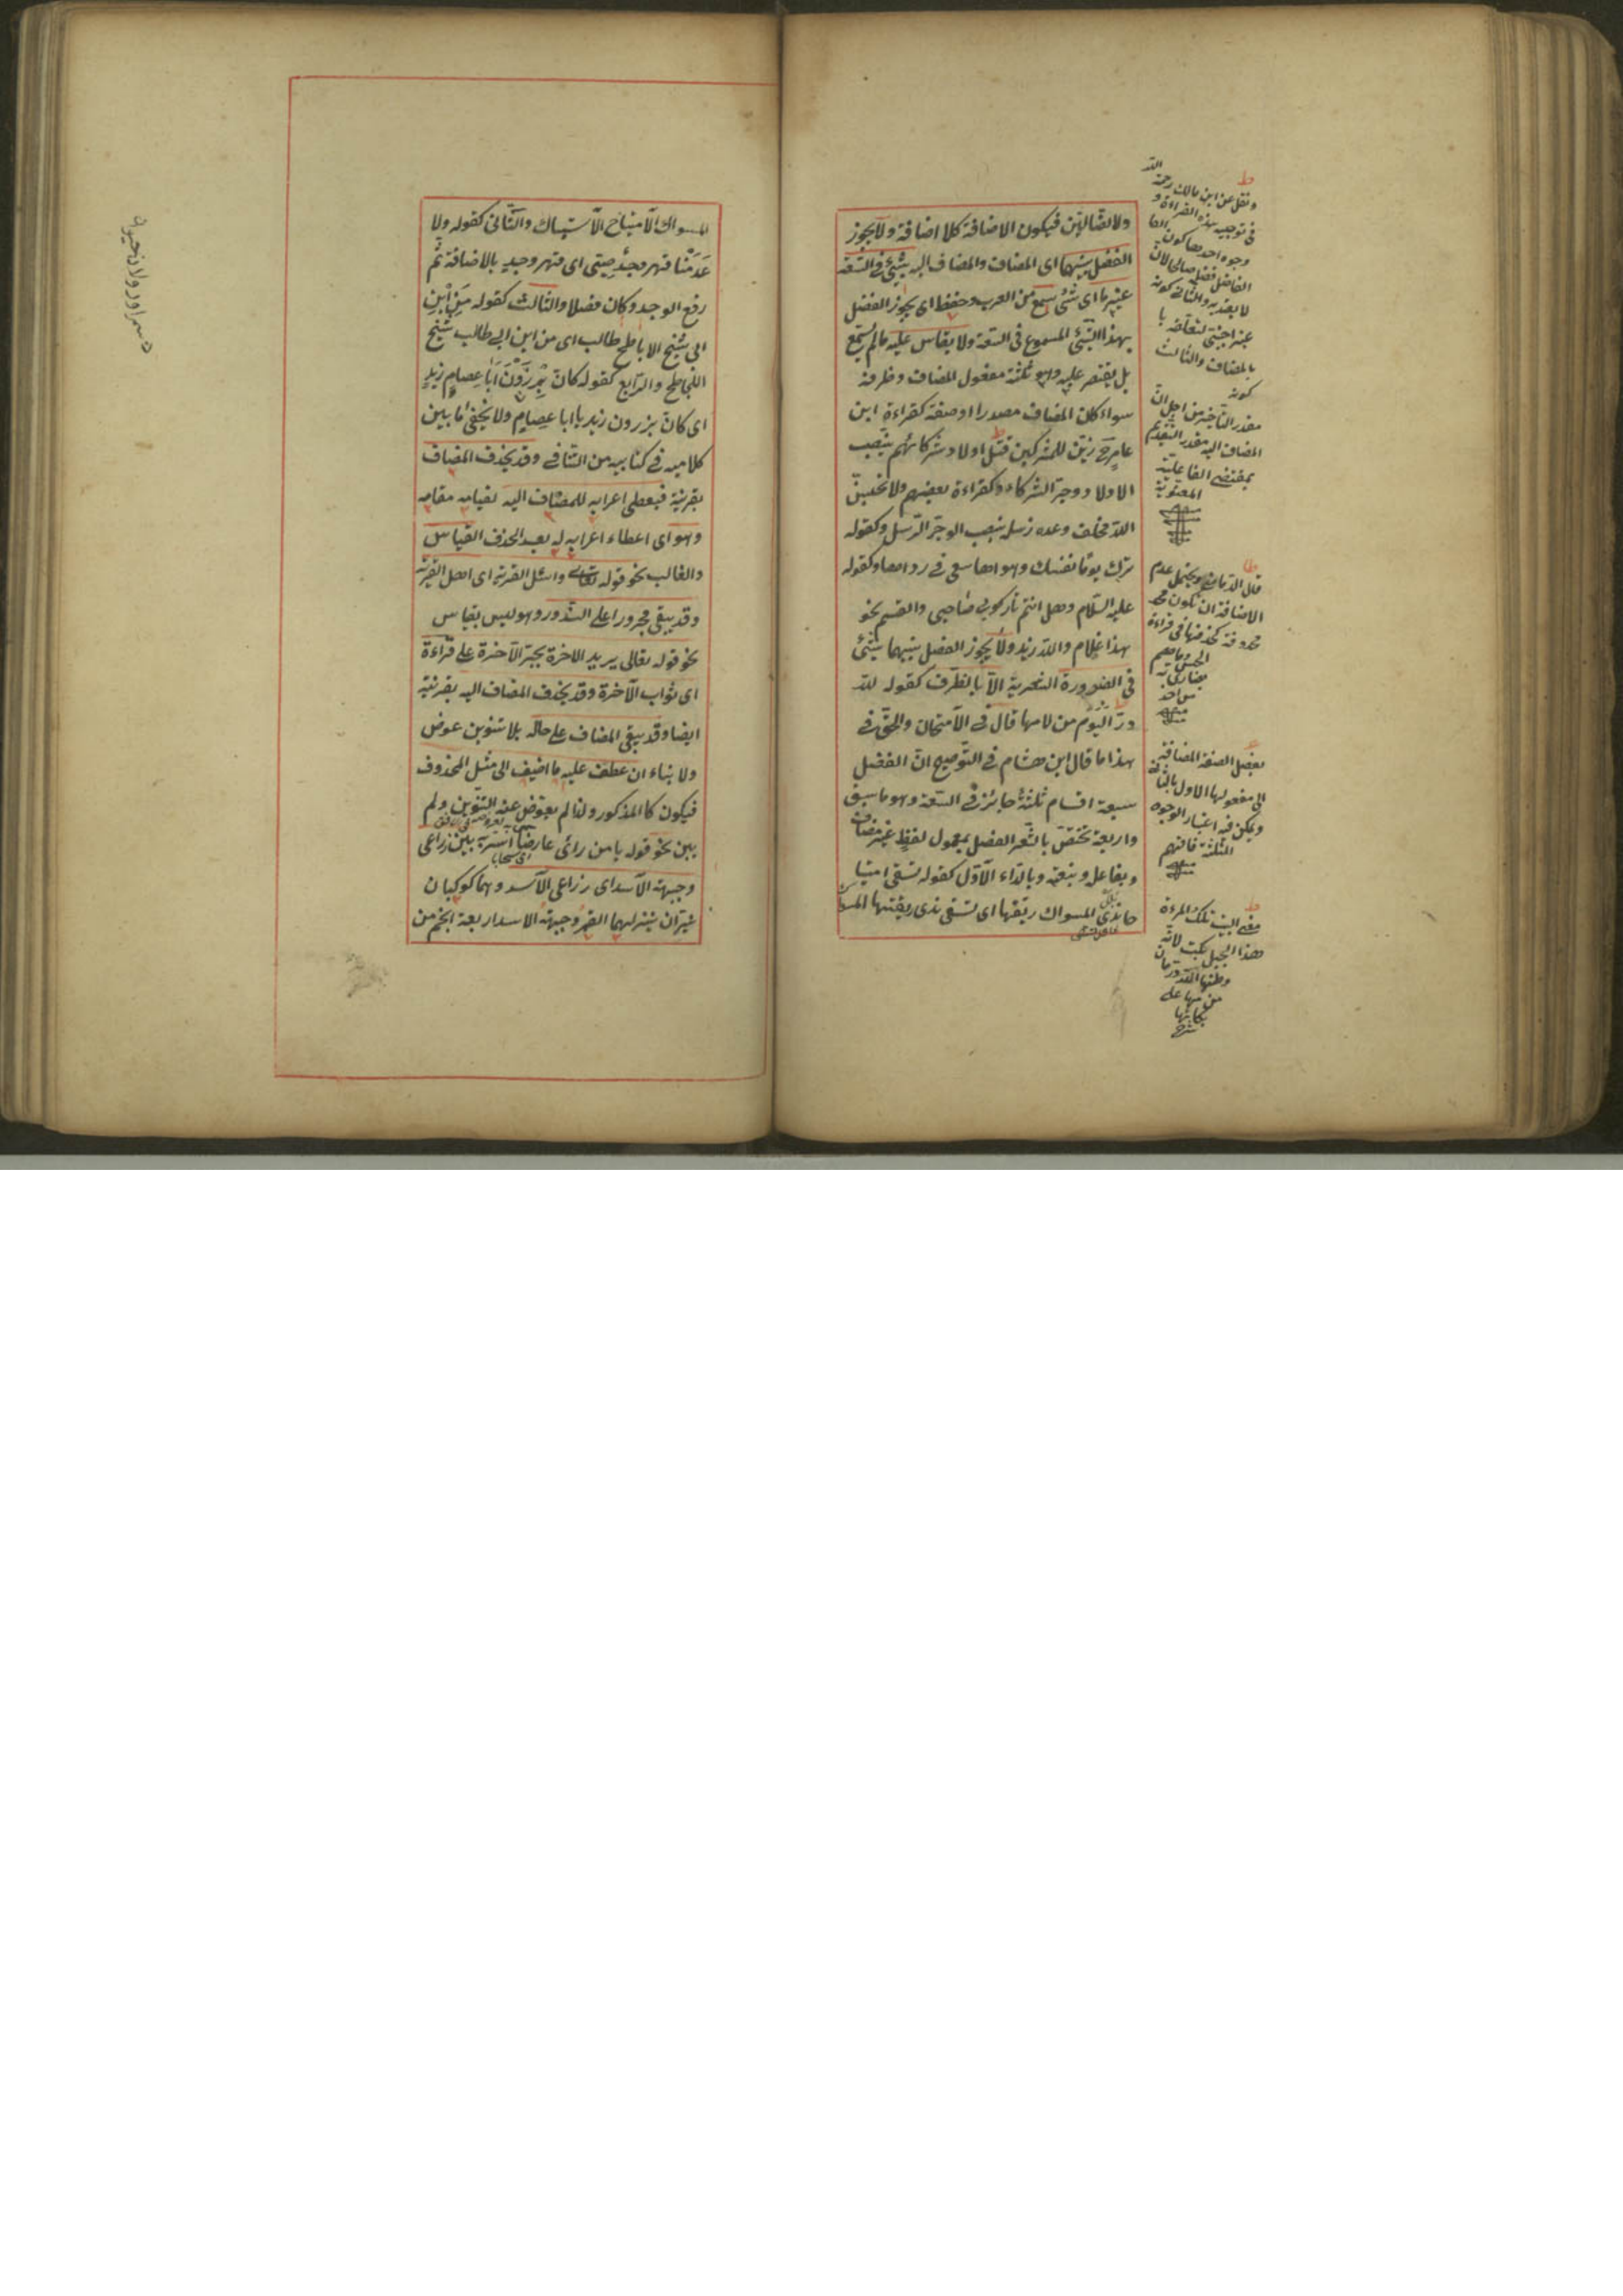 ولا الضالين فيكون الاضافة كلا اضافة ولا يجوز
الفصل بينهما اى المضاف والمضاف اليه بشئ فى السعة
غير ما اى شئ سمع من العرب وحفظ اى يجوز الفصل
بهذا الشئ المسموع فى السعة ولا يقاس عليه ما لم يسمع
بل يقتصر عليه وهو ثلثة مفعول المضاف وظرفه
سواء كان المضاف مصدرا او صفة كقراءة ابن
عامر زين للمشركين قتل اولاد شركائهم بنصب
الاولاد وجر الشركاء وكقراءة بعضهم ولا تحسبن
الله مخلف وعده رسله بنصب الوعد وجر الرسل وكقوله
ترك يوما نفسك وهواها سعى فى رداها وكقوله
عليه السلام وهل انتم تاركو لى صاحبى والقسم نحو
هذا غلام والله زيد ولا يجوز الفصل بينهما بشئ
فى الضرورة الشعرية الا بالظرف كقوله لله
در اليوم من لامها قال فى الامتحان والحق فى
هذا ما قال ابن هشام فى التوضيح ان الفصل
سبعة اقسام ثلثة جائز فى السعة وهو ما سبق
واربعة تختص بالشعر الفصل بمعمول لفظ غير مضاف
وبفاعل وبنعته وبالنداء الاول كقوله تسقى امتياحا
ندى المسواك ريقتها اى تسقى ندى ريقتها المسواك
ونقل عن ابن مالك رحمه الله
فى توجيه هذه القراءة
وجوه احدها كون
الفاصل فضلة صالحا لان
لا يعتد به والثانى كونه
غير اجنبى لتعلقه
بالمضاف والثالث
كونه
مقدر التأخير من اجل ان
المضاف اليه مقدر التقديم
بمقتضى الفاعلية
المعنوية
قال الدمامينى ويحتمل عدم
الاضافة ان تكون
محذوفة كحذفها فى قراءة
من احد
بفصل الصفة المضافة
الى مفعولها الاول بالثانى
ويمكن فيه اعتبار الوجوه
الثلثة فافهم
معنى البيت تلك المرءة
هذا الجبل بكت لانه
المسواك الامتياح الاستياك والثانى كقوله ولا
عدمنا قهر وجد صب اى قهر وجد بالاضافة ثم
رفع الوجد وكان فضلا والثالث كقوله من ابن
ابى شيخ الاباطح طالب اى من ابن ابى طالب شيخ
الاباطح والرابع كقوله كان برذون ابا عصام زيد
اى كان برذون زيد يا ابا عصام ولا يخفى ما بين
كلاميه فى كتابيه من التنافى وقد يحذف المضاف
بقرينة فيعطى اعرابه للمضاف اليه لقيامه مقامه
وهو اى اعطاء اعرابه له بعد الحذف القياس
والغالب نحو قوله تعالى واسئل القرية اى اهل القرية
وقد يبقى مجرورا على الشذور وهو ليس بقياس
نحو قوله تعالى يريد الاخرة بجر الآخرة على قراءة
اى ثواب الآخرة وقد يحذف المضاف اليه بقرينة
ايضا وقد يبقى المضاف على حاله بلا تنوين عوض
ولا بناء ان عطف عليه ما اضيف الى مثل المحذوف
فيكون كالمذكور ولذا لم يعوض عنه التنوين ولم
يبن نحو قوله يا من رأى عارضا أسر به بين ذراعى
وجبهة الاسد اى ذراعى الاسد وهما كوكبان
نيران ينزلهما القمر وجبهة الاسد اربعة انجم من